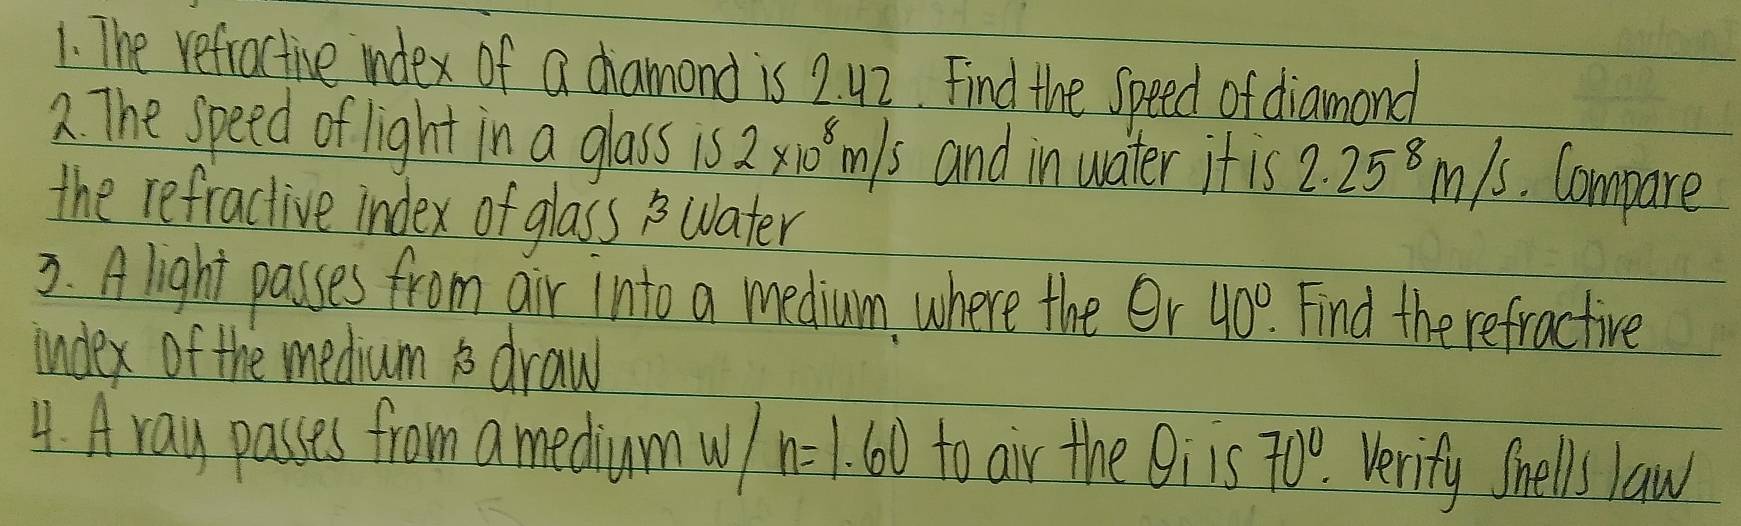 1. The refractive index of a diamond is 2.42. Find the speed of diamond
2. The speed of light in a glass is 2 x 10⁸ m/s and in water it is 2.25⁸ m/s. Compare
the refractive index of glass & water
3. A light passes from air into a medium, where the Θr 40°. Find the refractive
index of the medium & draw
4. A ray passes from a medium w/ n=1.60 to air the Θi is 70°. Verify Snells law